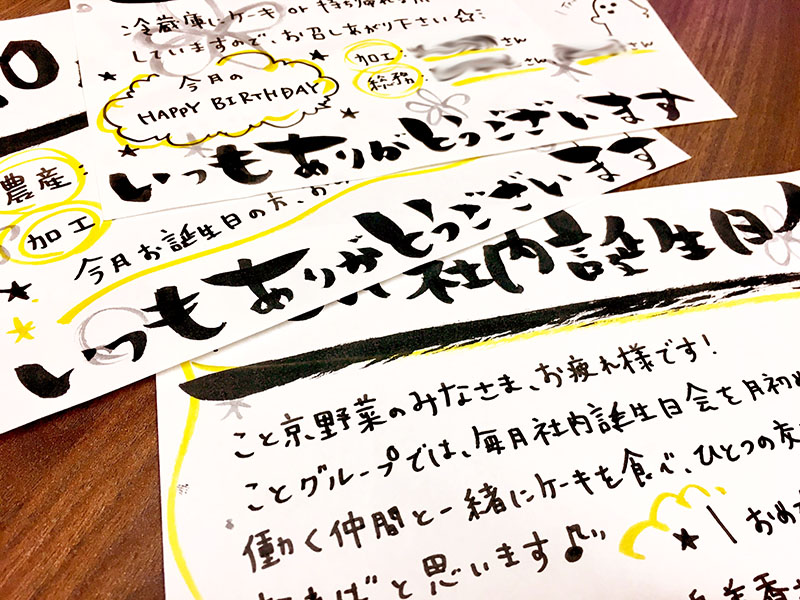 冷蔵庫にケーキ or 持ち帰れる
していますので、お召しあがり下さい☆
今月の
HAPPY BIRTHDAY
加工: さん
総務: さん さん
いつもありがとうございます
農産:
加工
今月お誕生日の方、
いつもありがとうございます
社内誕生日
こと京野菜のみなさま、お疲れ様です!
ことグループでは、毎月社内誕生日会を月初め
働く仲間と一緒にケーキを食べ、ひとつの
と思います♪
おめ